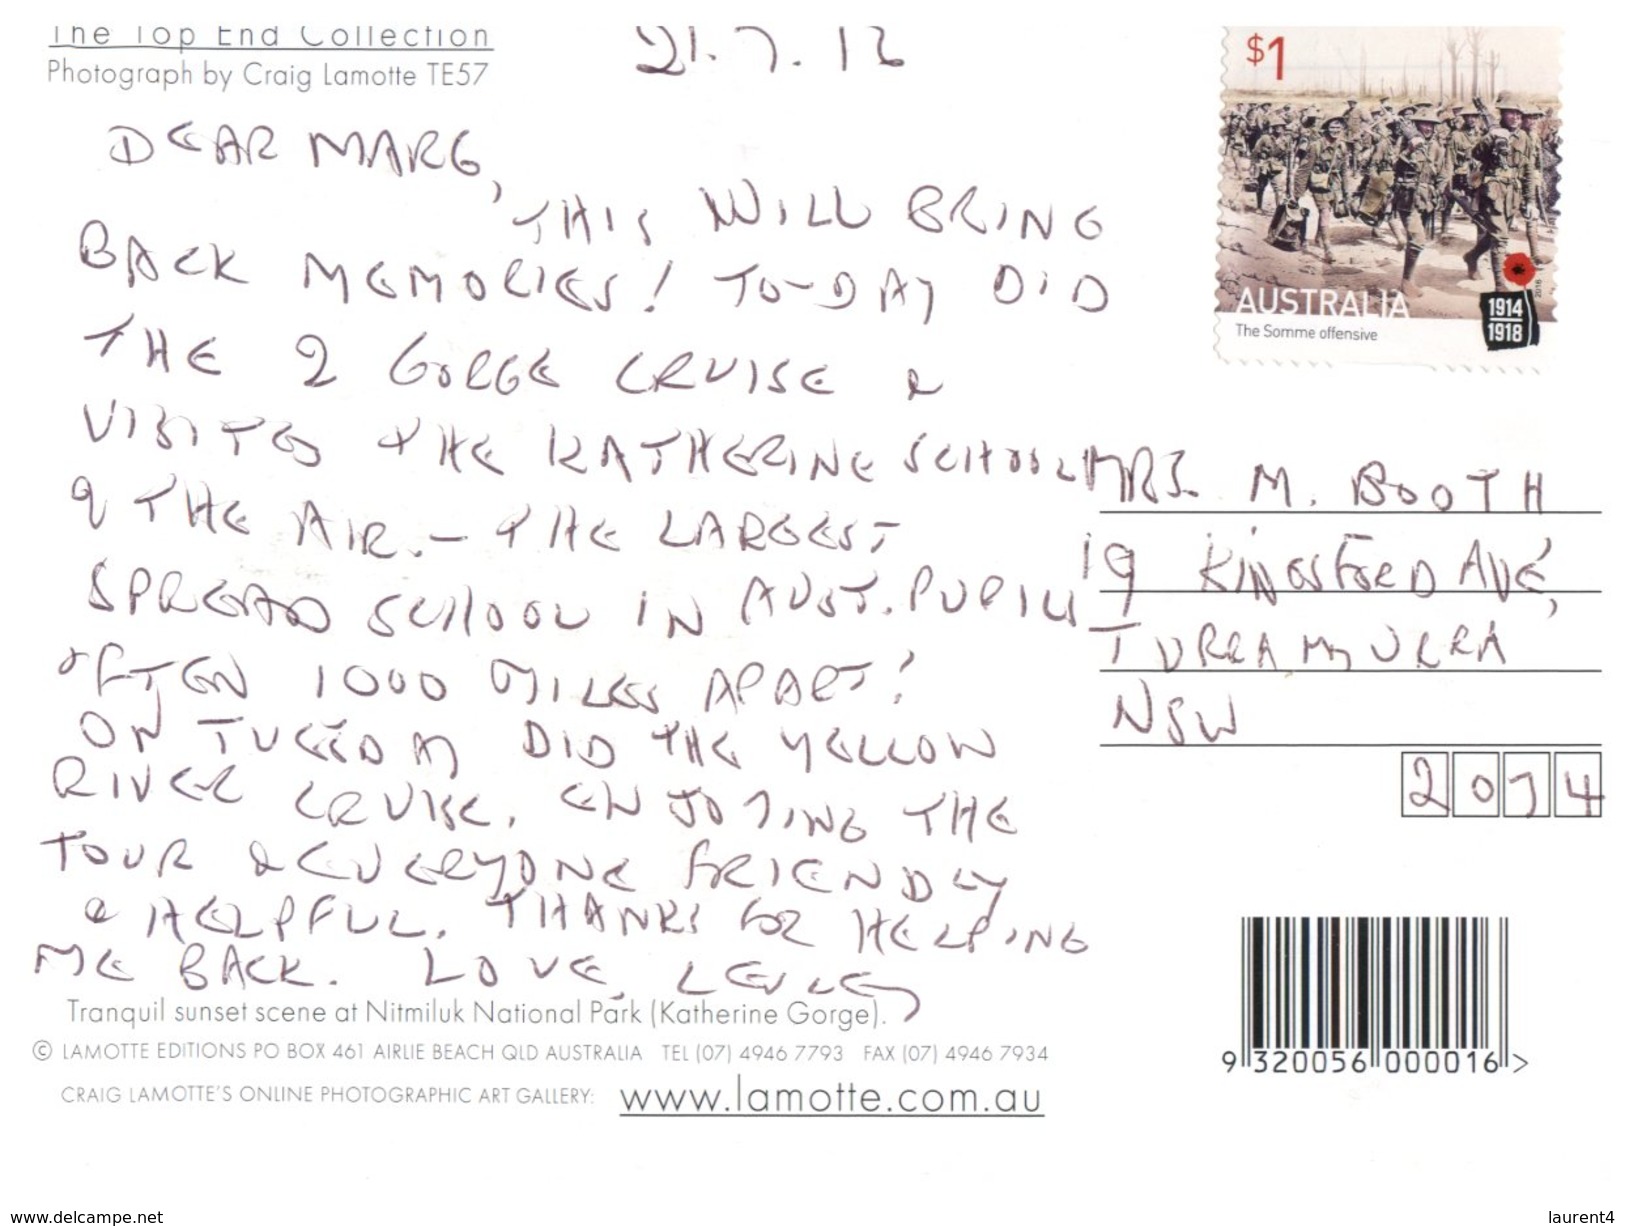 The Top End Collection
Photograph by Craig Lamotte TE57
21.7.12
DEAR MARG,
THIS WILL BRING
BACK MEMORIES! TO-DAY DID
THE 2 GORGE CRUISE &
VISITED THE KATHERINE SCHOOL
OF THE AIR. - THE LARGEST
SPREAD SCHOOL IN AUST. PUPILS
OFTEN 1000 MILES APART!
ON TUESDAY DID THE YELLOW
RIVER CRUISE. ENJOYING THE
TOUR & EVERYONE FRIENDLY
& HELPFUL. THANKS FOR HELPING
ME BACK. LOVE, LESLEY
Tranquil sunset scene at Nitmiluk National Park (Katherine Gorge).
© LAMOTTE EDITIONS PO BOX 461 AIRLIE BEACH QLD AUSTRALIA TEL (07) 4946 7793 FAX (07) 4946 7934
CRAIG LAMOTTE'S ONLINE PHOTOGRAPHIC ART GALLERY: www.lamotte.com.au
$1
AUSTRALIA
The Somme offensive
1914
1918
2016
MRS. M. BOOTH
19 KINGSFORD AVE,
TURRAMURRA
NSW
2074
9 320056 000016 >
www.delcampe.net
laurent4